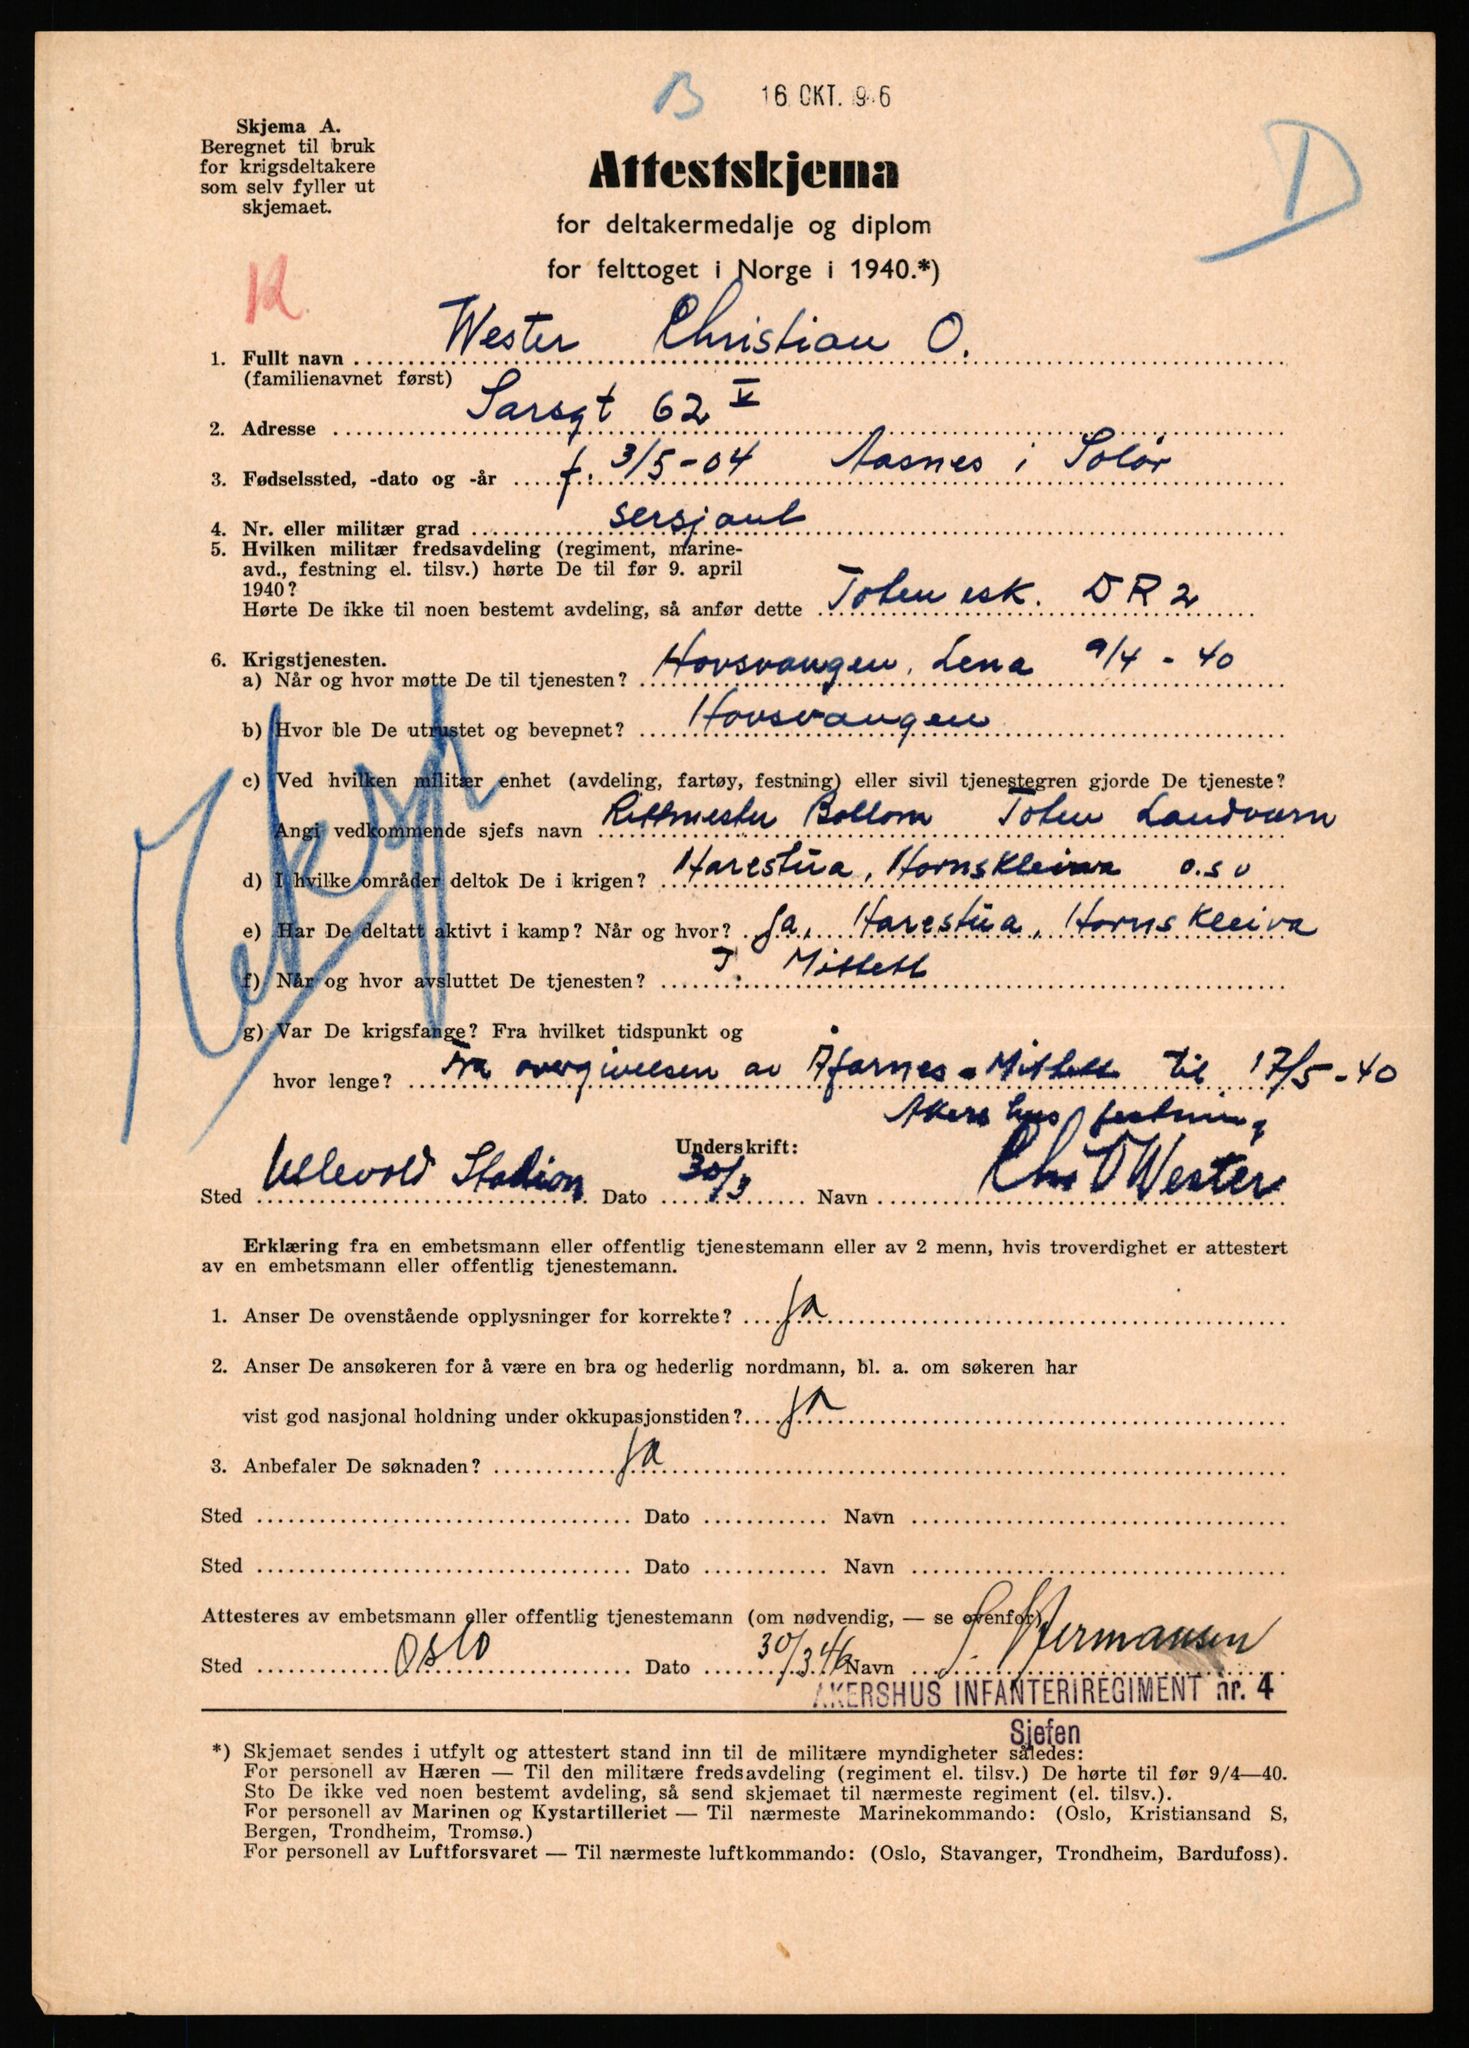 B 16 OKT. 1946
Skjema A.
Beregnet til bruk
for krigsdeltakere
som selv fyller ut
skjemaet.
D
Attestskjema
for deltakermedalje og diplom
for felttoget i Norge i 1940.*)
1. Fullt navn Wester Christian O.
(familienavnet først)
2. Adresse Sarsgt 62 V
3. Fødselssted, -dato og -år f. 3/5-04 Aasnes i Solør
4. Nr. eller militær grad sersjant
5. Hvilken militær fredsavdeling (regiment, marine-
avd., festning el. tilsv.) hørte De til før 9. april
1940?
Hørte De ikke til noen bestemt avdeling, så anfør dette Toten esk. DR2
6. Krigstjenesten.
a) Når og hvor møtte De til tjenesten? Hovsvangen, Lena 9/4 - 40
b) Hvor ble De utrustet og bevepnet? Hovsvangen
c) Ved hvilken militær enhet (avdeling, fartøy, festning) eller sivil tjenestegren gjorde De tjeneste?
Angi vedkommende sjefs navn Rittmester Toten Landvern
d) I hvilke områder deltok De i krigen? Harestua, Hornskleiva o.s.v
e) Har De deltatt aktivt i kamp? Når og hvor? Ja, Harestua, Hornskleiva
f) Når og hvor avsluttet De tjenesten? I. Mittett
g) Var De krigsfange? Fra hvilket tidspunkt og
hvor lenge? Fra overgivelsen av Åfarnes - Mittett til 17/5-40
Akershus festning
Underskrift:
Sted Ullevold Stadion Dato 30/3 Navn Chr O Wester
Erklæring fra en embetsmann eller offentlig tjenestemann eller av 2 menn, hvis troverdighet er attestert
av en embetsmann eller offentlig tjenestemann.
1. Anser De ovenstående opplysninger for korrekte? Ja
2. Anser De ansøkeren for å være en bra og hederlig nordmann, bl. a. om søkeren har
vist god nasjonal holdning under okkupasjonstiden? Ja
3. Anbefaler De søknaden? Ja
Sted Dato Navn
Sted Dato Navn
Attesteres av embetsmann eller offentlig tjenestemann (om nødvendig, — se ovenfor).
Sted Oslo Dato 30/3 46 Navn Hermansen
AKERSHUS INFANTERIREGIMENT nr. 4
Sjefen
*) Skjemaet sendes i utfylt og attestert stand inn til de militære myndigheter således:
For personell av Hæren — Til den militære fredsavdeling (regiment el. tilsv.) De hørte til før 9/4—40.
Sto De ikke ved noen bestemt avdeling, så send skjemaet til nærmeste regiment (el. tilsv.).
For personell av Marinen og Kystartilleriet — Til nærmeste Marinekommando: (Oslo, Kristiansand S,
Bergen, Trondheim, Tromsø.)
For personell av Luftforsvaret — Til nærmeste luftkommando: (Oslo, Stavanger, Trondheim, Bardufoss).